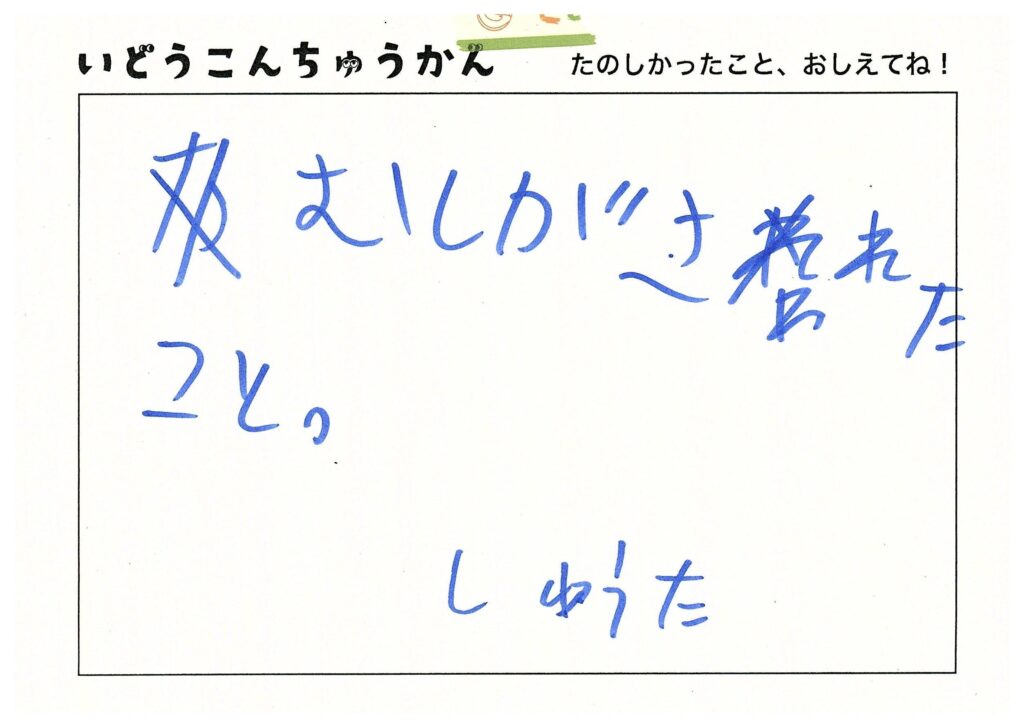 いどうこんちゅうかん たのしかったこと、おしえてね！
むしがさわれた
こと。
しゅうた